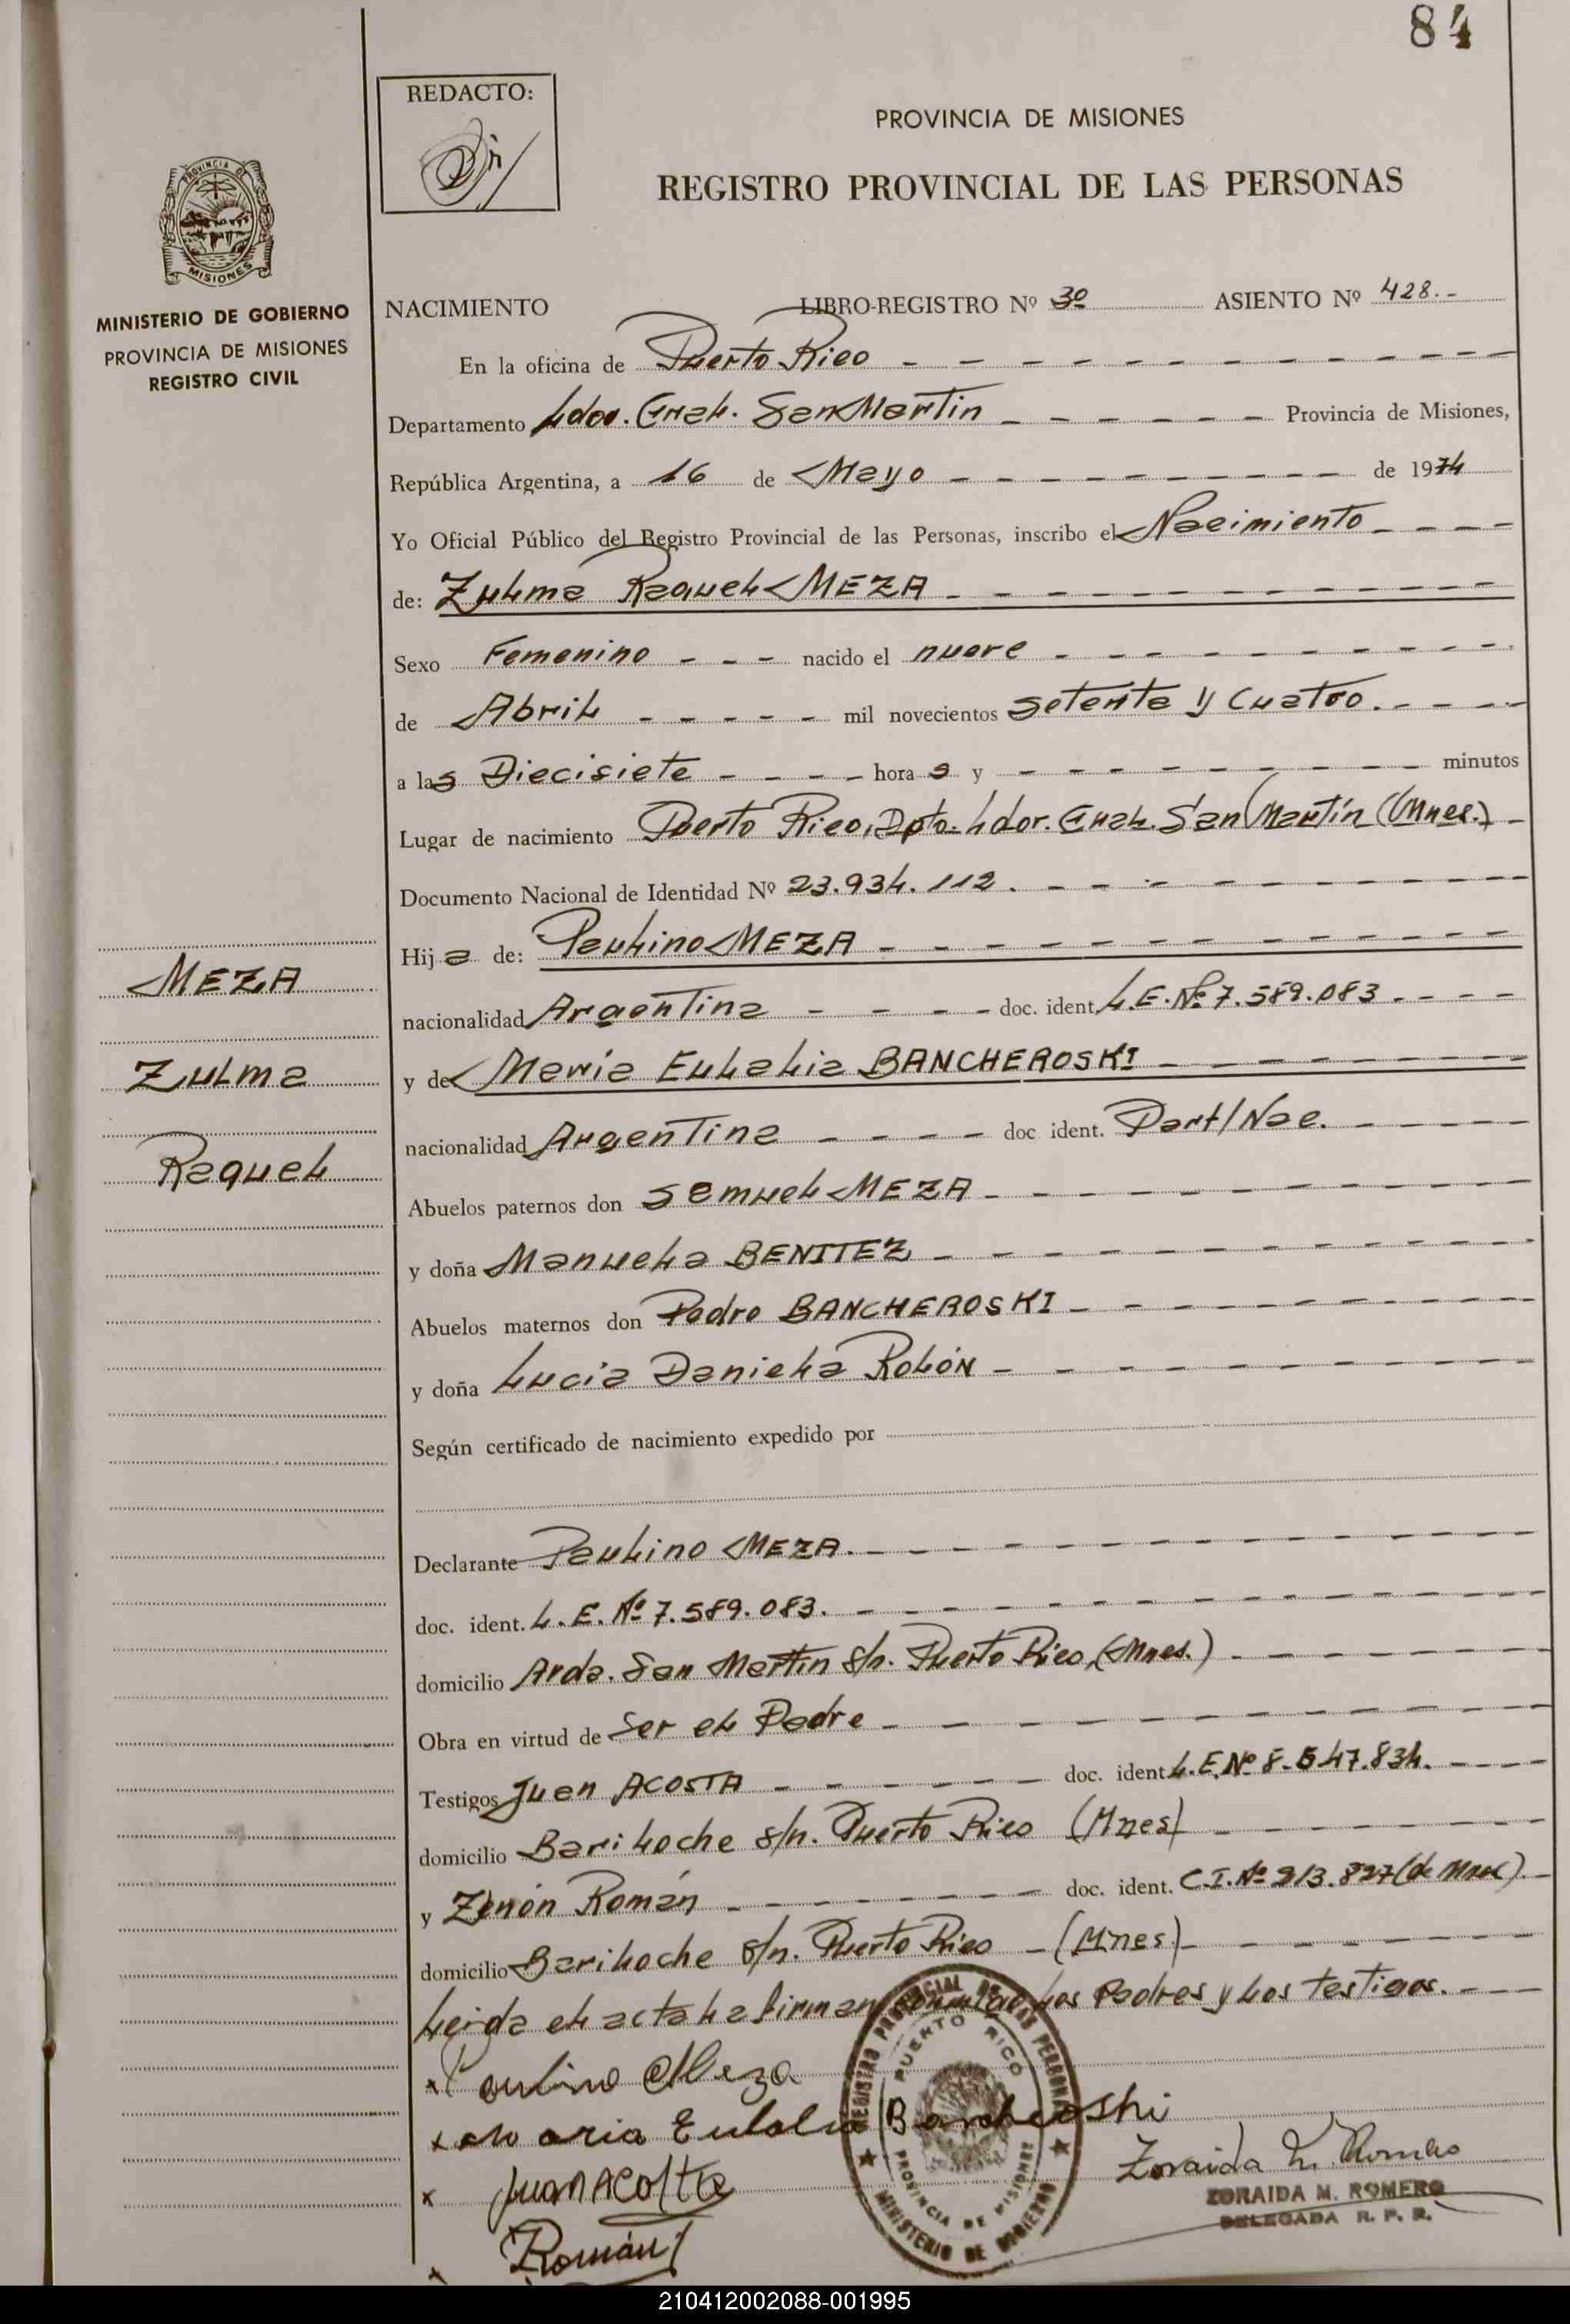 84
REDACTO:
PROVINCIA DE MISIONES
REGISTRO PROVINCIAL DE LAS PERSONAS
PROVINCIA D
MISIONES
MINISTERIO DE GOBIERNO
PROVINCIA DE MISIONES
REGISTRO CIVIL
NACIMIENTO LIBRO-REGISTRO Nº 3º ASIENTO Nº 428.-
En la oficina de Puerto Rico - - - - - - - - - - - - -
Departamento Ldor. Gral. San Martin - - - - - - Provincia de Misiones,
República Argentina, a 16 de Mayo - - - - - - - - - de 1974
Yo Oficial Público del Registro Provincial de las Personas, inscribo el Nacimiento - - - -
de: Zulma Raquel MEZA - - - - - - - - - - - -
Sexo Femenino - - - nacido el nueve - - - - - - - - - -
de Abril - - - - - mil novecientos setenta y Cuatro. - - - -
a las Diecisiete - - - - hora s y - - - - - - - - - minutos
Lugar de nacimiento Puerto Rico, Dpto. Ldor. Gral. San Martín (Mnes.) -
Documento Nacional de Identidad Nº 23.934.112. - - - - - - - - -
Hij a de: Paulino MEZA - - - - - - - - - - - -
nacionalidad Argentina - - - - doc. ident. L.E. Nº 7.589.083 - - - -
y de María Eulalia BANCHEROSKI - - - - - - -
nacionalidad Argentina - - - - doc ident. Part/Nac. - - - - -
Abuelos paternos don Samuel MEZA - - - - - - - - - -
y doña Manuela BENITEZ - - - - - - - - - - -
Abuelos maternos don Pedro BANCHEROSKI - - - - - - - - -
y doña Lucia Daniela Rolón - - - - - - - - - -
Según certificado de nacimiento expedido por
Declarante Paulino MEZA. - - - - - - - - - - - -
doc. ident. L.E. Nº 7.589.083. - - - - - - - - - - - -
domicilio Avda. San Martín s/n. Puerto Rico, (Mnes.) - - - - - -
Obra en virtud de Ser el Padre - - - - - - - - - - -
Testigos Juan ACOSTA - - - - - - doc. ident L.E. Nº 8.547.834. - - - -
domicilio Bariloche s/n. Puerto Rico (Mnes) - - - - - - -
y Zenón Román - - - - - - doc. ident. C.I. Nº 213.827 (de Mnes). -
domicilio Bariloche s/n. Puerto Rico - (Mnes) - - - - - - -
Leida el acta la firman conmigo los Padres y los testigos. - - -
x Paulino Meza
x Maria Eulalia Bancheroski
x Juan Acosta
Román
x
Zoraida M. Romero
ZORAIDA M. ROMERO
DELEGADA R. P. P.
REGISTRO PROVINCIAL DE LAS PERSONAS
PUERTO RICO
PROVINCIA DE MISIONES
MINISTERIO DE GOBIERNO
MEZA
Zulma
Raquel
210412002088-001995